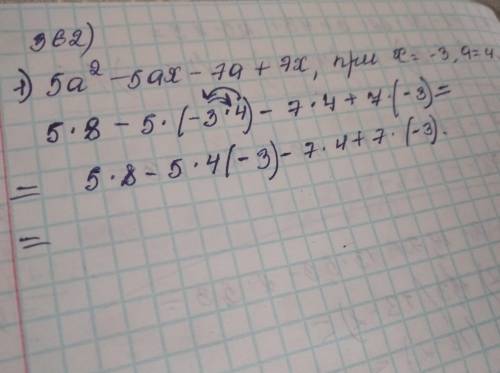 362)
1) 5a² - 5ax - 7a + 7x, при x = -3, a = 4
5·8 - 5·(-3·4) - 7·4 + 7·(-3) =
= 5·8 - 5·4(-3) - 7·4 + 7·(-3).
=